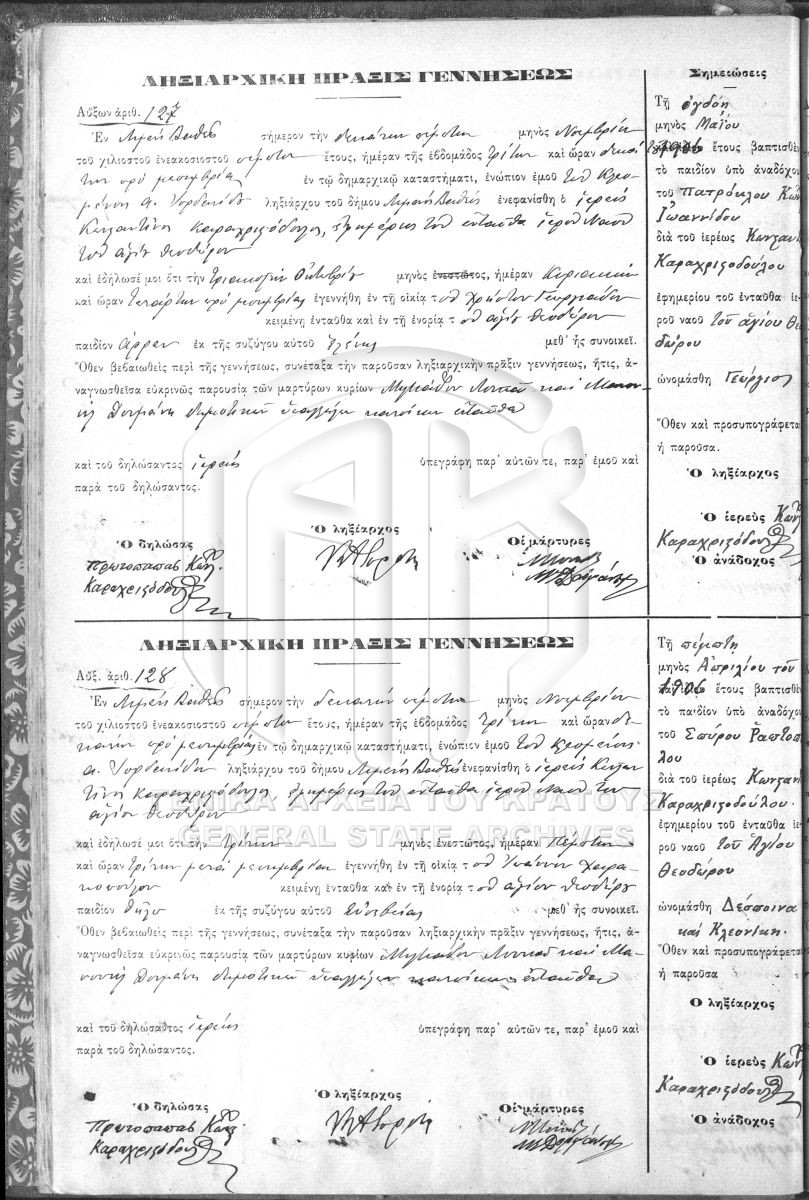 ΛΗΞΙΑΡΧΙΚΗ ΠΡΑΞΙΣ ΓΕΝΝΗΣΕΩΣ
Αὔξων ἀριθ. 127
Ἐν Λιμένι Βαθέος σήμερον τὴν δεκάτην πέμπτην μηνὸς Νοεμβρίου
τοῦ χιλιοστοῦ ἐνεακοσιοστοῦ πέμπτου ἔτους, ἡμέραν τῆς ἑβδομάδος Τρίτην καὶ ὥραν
την πρὸ μεσημβρίας ἐν τῷ δημαρχικῷ καταστήματι, ἐνώπιον ἐμοῦ τοῦ Κλεο-
μένους ληξιάρχου τοῦ δήμου Λιμένος Βαθέος ἐνεφανίσθη ὁ ἱερεὺς
Κωνσταντῖνος Καραχριζόδουλος, ἐφημέριος τοῦ ἐνταῦθα ἱεροῦ Ναοῦ
τοῦ ἁγίου Θεοδώρου
καὶ ἐδήλωσέ μοι ὅτι τὴν τριακοστὴν Ὀκτωβρίου μηνὸς ἐνεστῶτος, ἡμέραν Κυριακὴν
καὶ ὥραν τετάρτην πρὸ μεσημβρίας ἐγεννήθη ἐν τῇ οἰκίᾳ τοῦ Χρήστου Γεωργιάδου
κειμένῃ ἐνταῦθα καὶ ἐν τῇ ἐνορίᾳ τοῦ ἁγίου Θεοδώρου
παιδίον ἄρρεν ἐκ τῆς συζύγου αὐτοῦ Ἑλένης μεθ' ἧς συνοικεῖ.
Ὅθεν βεβαιωθεὶς περὶ τῆς γεννήσεως, συνέταξα τὴν παροῦσαν ληξιαρχικὴν πρᾶξιν γεννήσεως, ἥτις, ἀ-
ναγνωσθεῖσα εὐκρινῶς παρουσίᾳ τῶν μαρτύρων κυρίων Μιλτιάδου καὶ Μανου-
ὴλ δημοτικῶν ὑπαλλήλων κατοίκων ἐνταῦθα
καὶ τοῦ δηλώσαντος ἱερέως ὑπεγράφη παρ' αὐτῶν τε, παρ' ἐμοῦ καὶ
παρὰ τοῦ δηλώσαντος.
Ὁ δηλώσας
Ὁ ληξίαρχος
Οἱ μάρτυρες
Πρωτοπαπᾶς Κωνστ.
Καραχριζόδουλος
Σημειώσεις
Τῇ ὀγδόῃ
μηνὸς Μαΐου
1906 ἔτους βαπτισθὲν
τὸ παιδίον ὑπὸ ἀναδόχου
τοῦ Πατρόκλου Κων
Ἰωαννίδου
διὰ τοῦ ἱερέως Κωνσταντί
Καραχριζοδούλου
ἐφημερίου τοῦ ἐνταῦθα ἱε-
ροῦ ναοῦ τοῦ ἁγίου Θεο
δώρου
ὠνομάσθη Γεώργιος
Ὅθεν καὶ προσυπογράφεται
ἡ παροῦσα.
Ὁ ληξίαρχος
Ὁ ἱερεὺς Κων
Καραχριζόδουλος
Ὁ ἀνάδοχος
ΛΗΞΙΑΡΧΙΚΗ ΠΡΑΞΙΣ ΓΕΝΝΗΣΕΩΣ
Αὔξ. ἀριθ. 128
Ἐν Λιμένι Βαθέος σήμερον τὴν δεκάτην πέμπτην μηνὸς Νοεμβρίου
τοῦ χιλιοστοῦ ἐνεακοσιοστοῦ πέμπτου ἔτους, ἡμέραν τῆς ἑβδομάδος Τρίτην καὶ ὥραν δε-
κάτην πρὸ μεσημβρίας ἐν τῷ δημαρχικῷ καταστήματι, ἐνώπιον ἐμοῦ τοῦ Κλεομένους
ληξιάρχου τοῦ δήμου Λιμένος Βαθέος ἐνεφανίσθη ὁ ἱερεὺς Κωνσταν
τῖνος Καραχριζόδουλος ἐφημέριος τοῦ ἐνταῦθα ἱεροῦ Ναοῦ τοῦ
ἁγίου Θεοδώρου
καὶ ἐδήλωσέ μοι ὅτι τὴν τρίτην μηνὸς ἐνεστῶτος, ἡμέραν Πέμπτην
καὶ ὥραν τρίτην μετὰ μεσημβρίαν ἐγεννήθη ἐν τῇ οἰκίᾳ τοῦ Ἰωάννου
κειμένῃ ἐνταῦθα καὶ ἐν τῇ ἐνορίᾳ τοῦ ἁγίου Θεοδώρου
παιδίον θῆλυ ἐκ τῆς συζύγου αὐτοῦ Εὐσεβείας μεθ' ἧς συνοικεῖ.
Ὅθεν βεβαιωθεὶς περὶ τῆς γεννήσεως, συνέταξα τὴν παροῦσαν ληξιαρχικὴν πρᾶξιν γεννήσεως, ἥτις, ἀ-
ναγνωσθεῖσα εὐκρινῶς παρουσίᾳ τῶν μαρτύρων κυρίων Μιλτιάδου καὶ Μα-
νουὴλ δημοτικῶν ὑπαλλήλων κατοίκων ἐνταῦθα
καὶ τοῦ δηλώσαντος ἱερέως ὑπεγράφη παρ' αὐτῶν τε, παρ' ἐμοῦ καὶ
παρὰ τοῦ δηλώσαντος.
Ὁ δηλώσας
Ὁ ληξίαρχος
Οἱ μάρτυρες
Πρωτοπαπᾶς Κωνστ.
Καραχριζόδουλος
Τῇ πέμπτῃ
μηνὸς Ἀπριλίου τοῦ
1906 ἔτους βαπτισθὲν
τὸ παιδίον ὑπὸ ἀναδόχου
τοῦ Σπύρου Ῥαπτοπού
λου
διὰ τοῦ ἱερέως Κωνσταντί
Καραχριζοδούλου.
ἐφημερίου τοῦ ἐνταῦθα ἱε
ροῦ ναοῦ τοῦ Ἁγίου
Θεοδώρου
ὠνομάσθη Δέσποινα
καὶ Κλεονίκη.
Ὅθεν καὶ προσυπογράφεται
ἡ παροῦσα
Ὁ ληξίαρχος
Ὁ ἱερεὺς Κων
Καραχριζόδουλος
Ὁ ἀνάδοχος
ΓΕΝΙΚΑ ΑΡΧΕΙΑ ΤΟΥ ΚΡΑΤΟΥΣ
GENERAL STATE ARCHIVES